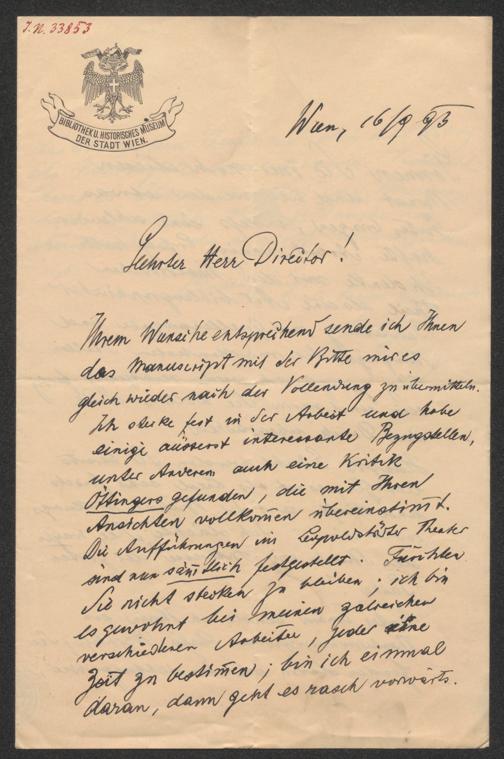 I.N. 33853
BIBLIOTHEK U. HISTORISCHES MUSEUM
DER STADT WIEN.
Wien, 16/9 93
Geehrter Herr Director!
Ihrem Wunsche entsprechend sende ich Ihnen
das Manuscript mit der Bitte mir es
gleich wieder nach der Vollendung zu übermitteln.
Ich stecke fest in der Arbeit und habe
einige äusserst interessante Bezugstellen,
unter Anderem auch eine Kritik
Öttingers gefunden, die mit Ihren
Ansichten vollkom̅en übereinstim̅t.
Die Aufführungen im Leopoldstädter Theater
sind nun säm̅tlich festgestellt. Fürchten
Sie nicht stecken zu bleiben; ich bin
es gewohnt bei meinen zalreichen
verschiedenen Arbeiten, jeder eine
Zeit zu bestim̅en; bin ich einmal
daran, dann geht es rasch vorwärts.